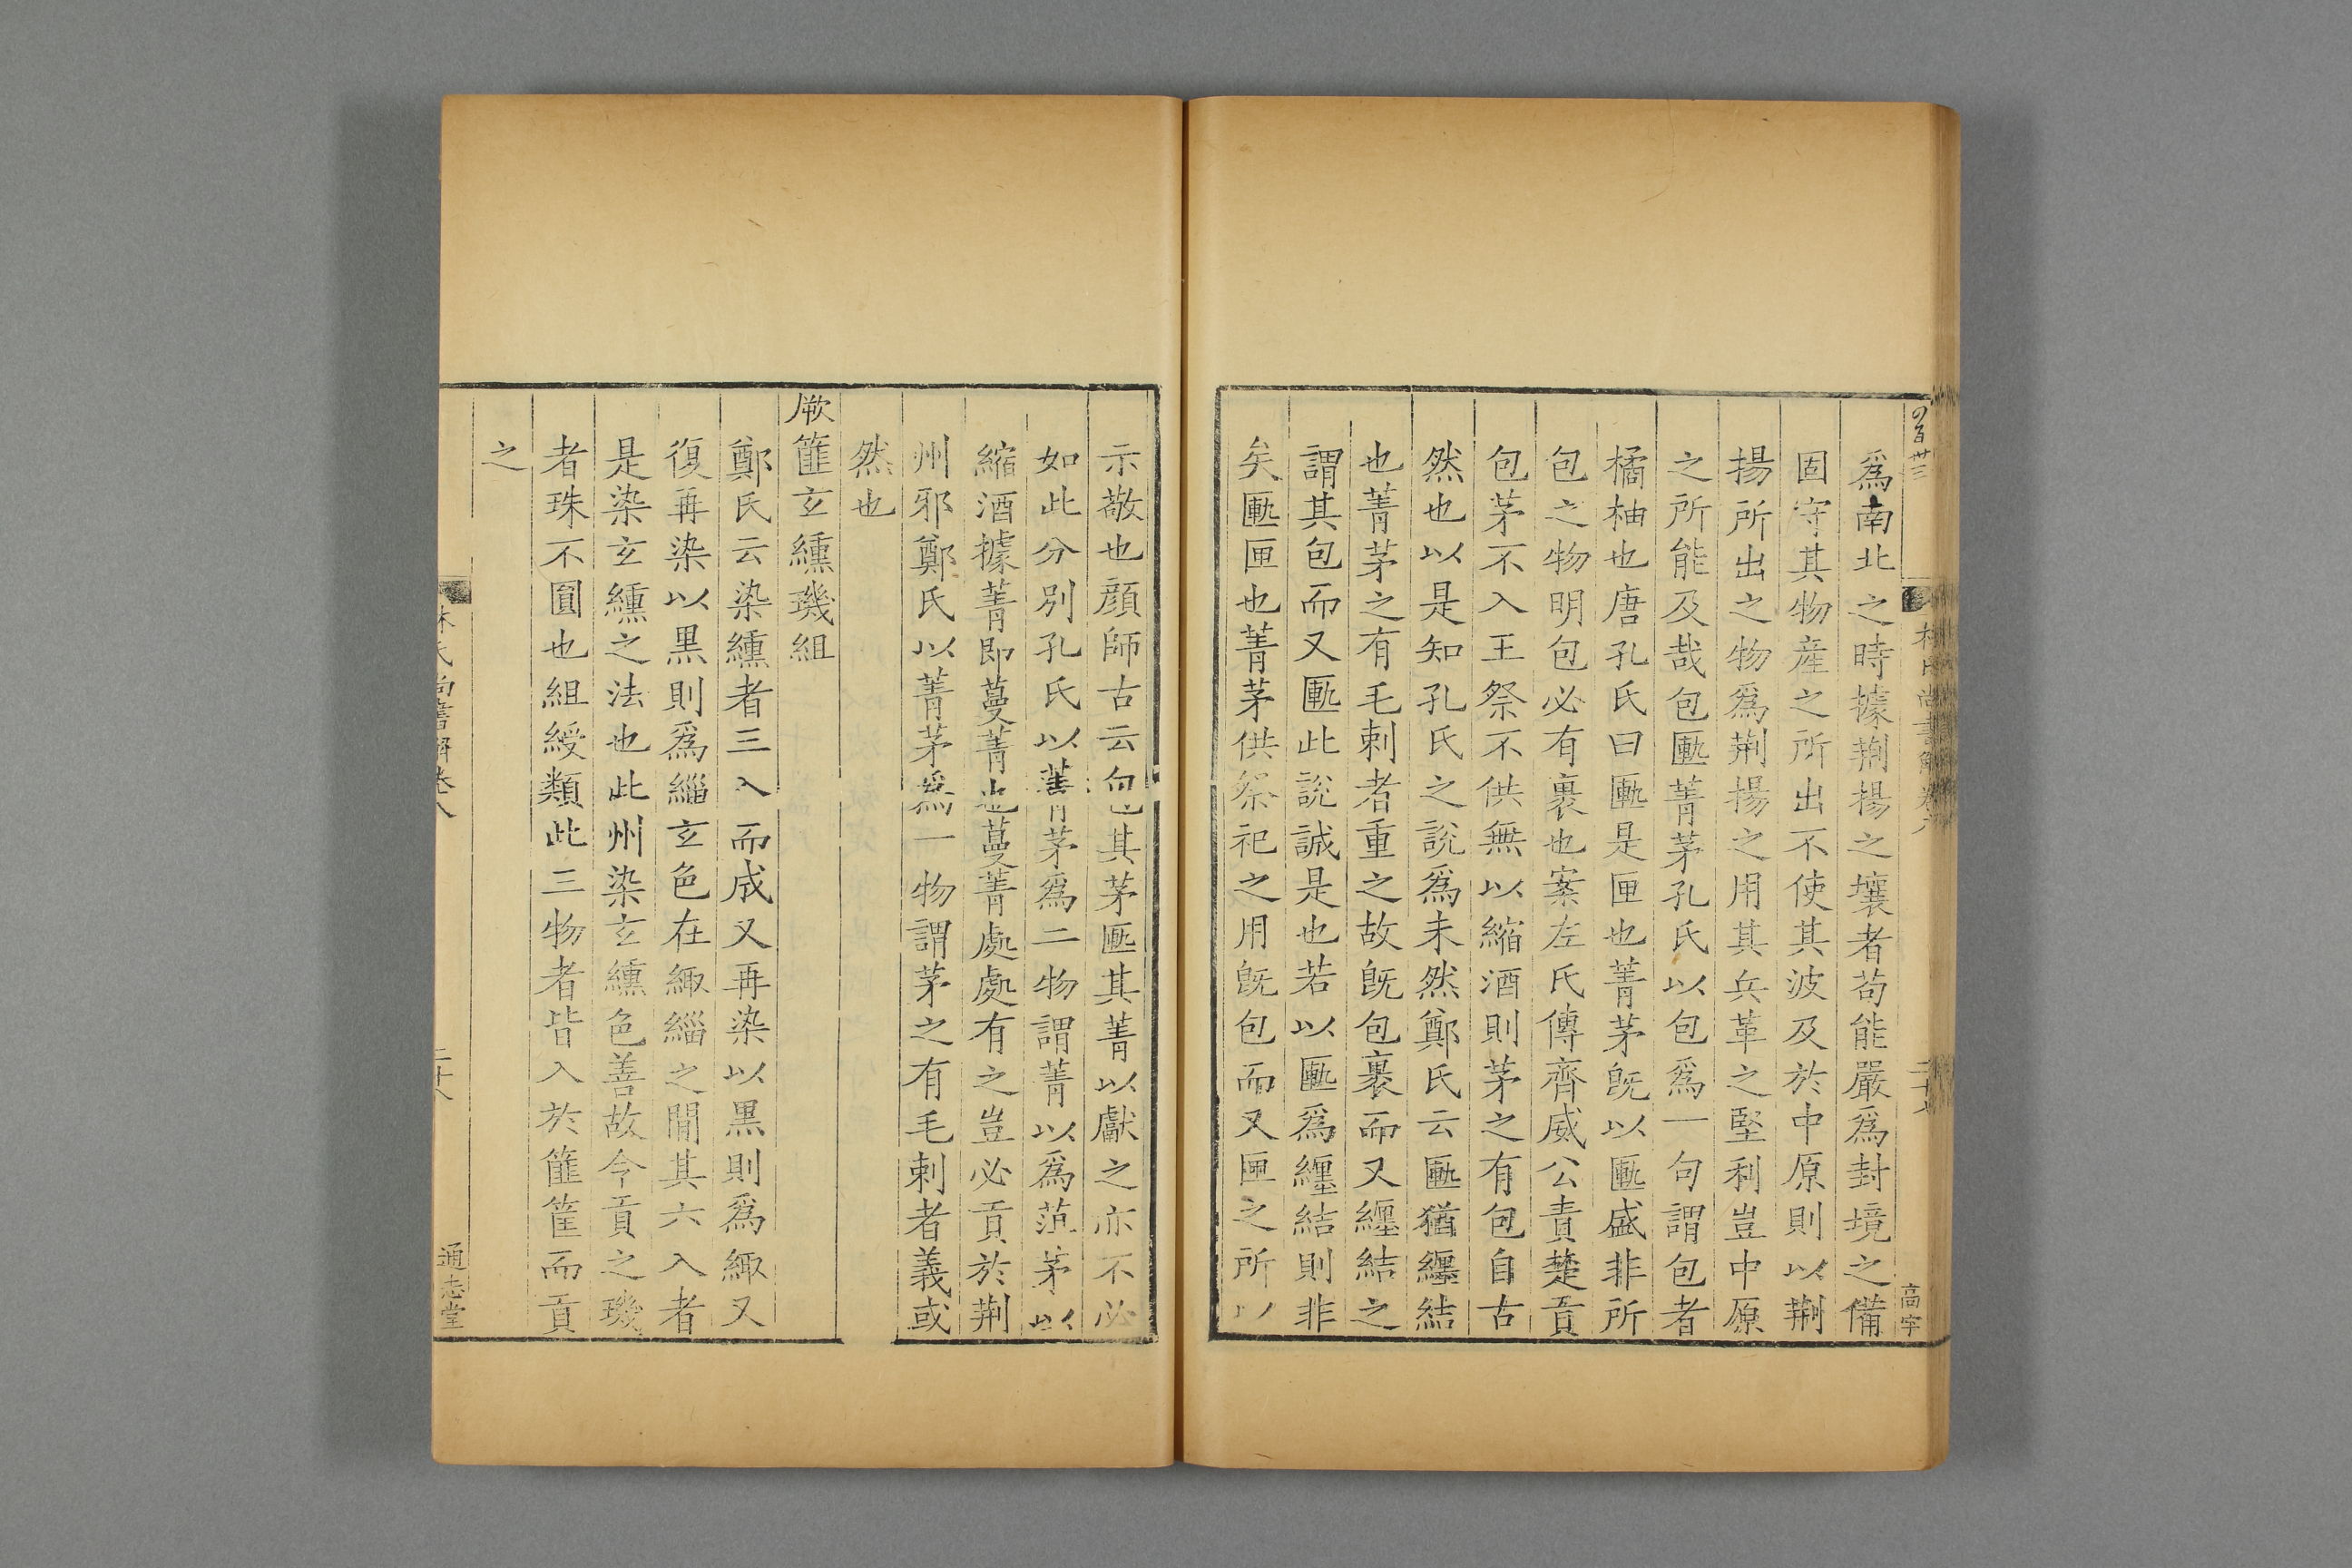 爲南北之時據荆揚之壤者苟能嚴爲封境之備
固守其物産之所出不使其波及於中原則以荆
揚所出之物爲荆揚之用其兵革之堅利豈中原
之所能及哉包匭菁茅孔氏以包爲一句謂包者
橘柚也唐孔氏曰匭是匣也菁茅旣以匭盛非所
包之物明包必有裹也案左氏傳齊威公責楚貢
包茅不入王祭不供無以縮酒則茅之有包自古
然也以是知孔氏之說爲未然鄭氏云匭猶纒結
也菁茅之有毛刺者重之故旣包裹而又纒結之
謂其包而又匭此說誠是也若以匭爲纒結則非
矣匭匣也菁茅供祭祀之用旣包而又匣之所以
高宇
示敬也顔師古云包其茅匭其菁以獻之亦不必
如此分別孔氏以菁茅爲二物謂菁以爲菹茅以
縮酒據菁即蔓菁也蔓菁處處有之豈必貢於荆
州邪鄭氏以菁茅爲一物謂茅之有毛刺者義或
然也
厥篚玄纁璣組
鄭氏云染纁者三入而成又再染以黒則爲緅又
復再染以黒則爲緇玄色在緅緇之閒其六入者
是染玄纁之法也此州染玄纁色善故令貢之璣
者珠不圓也組綬類此三物者皆入於篚筐而貢
之
林氏尚書解卷八
二十八
通志堂